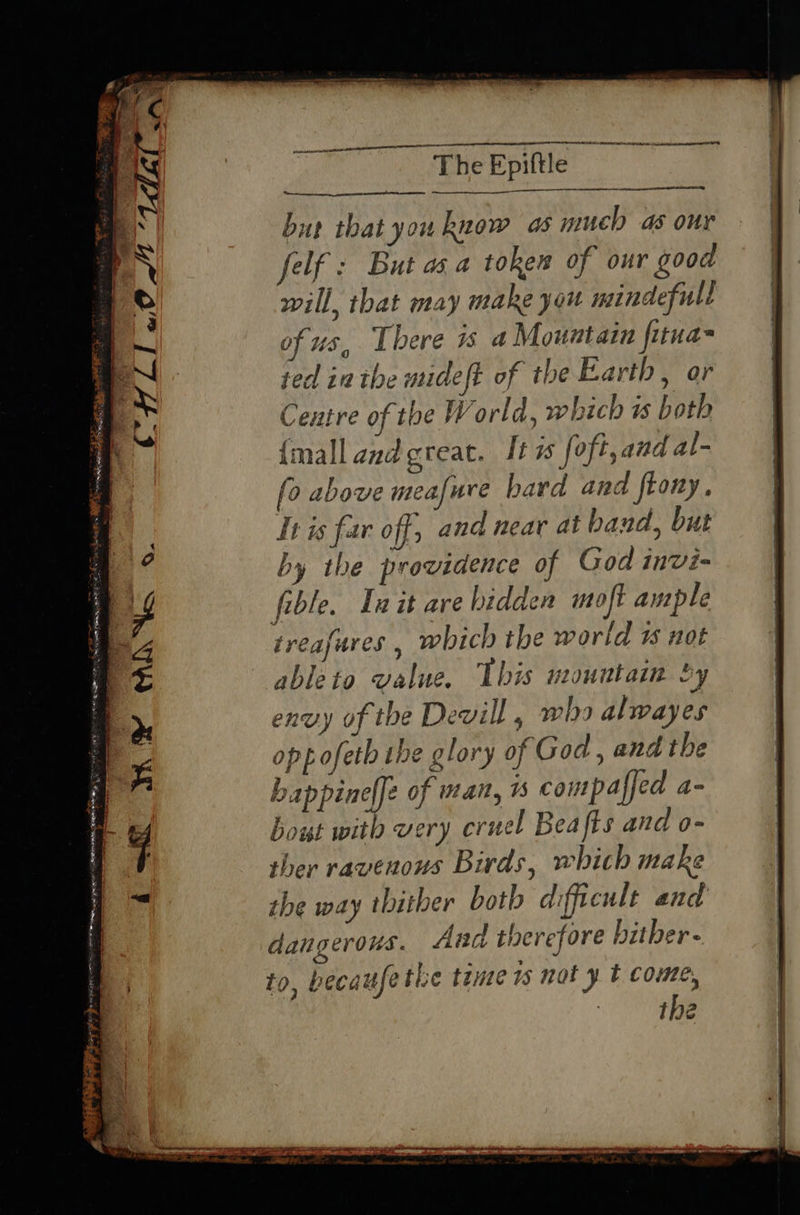 The Epiſtle
but that you know as much as our
ſelf : But as a token of our good
will, that may make you mindefull
of us, There is a Mountain ſitua-
ted in the mideſt of the Earth, or
Centre of the World, which is both
ſmall and great. It is ſoft, and al-
ſo above meaſure hard and ſtony.
It is far off, and near at hand, but
by the providence of God invi-
ſible. In it are hidden moſt ample
treaſures, which the world is not
able to value. This mountain by
envy of the Devill, who alwayes
oppoſeth the glory of God, and the
happineſſe of man, is compaſſed a-
bout with very cruel Beaſts and o-
ther ravenous Birds, which make
the way thither both difficult and
dangerous. And therefore hither-
to, becauſe the time is not y t come,
the